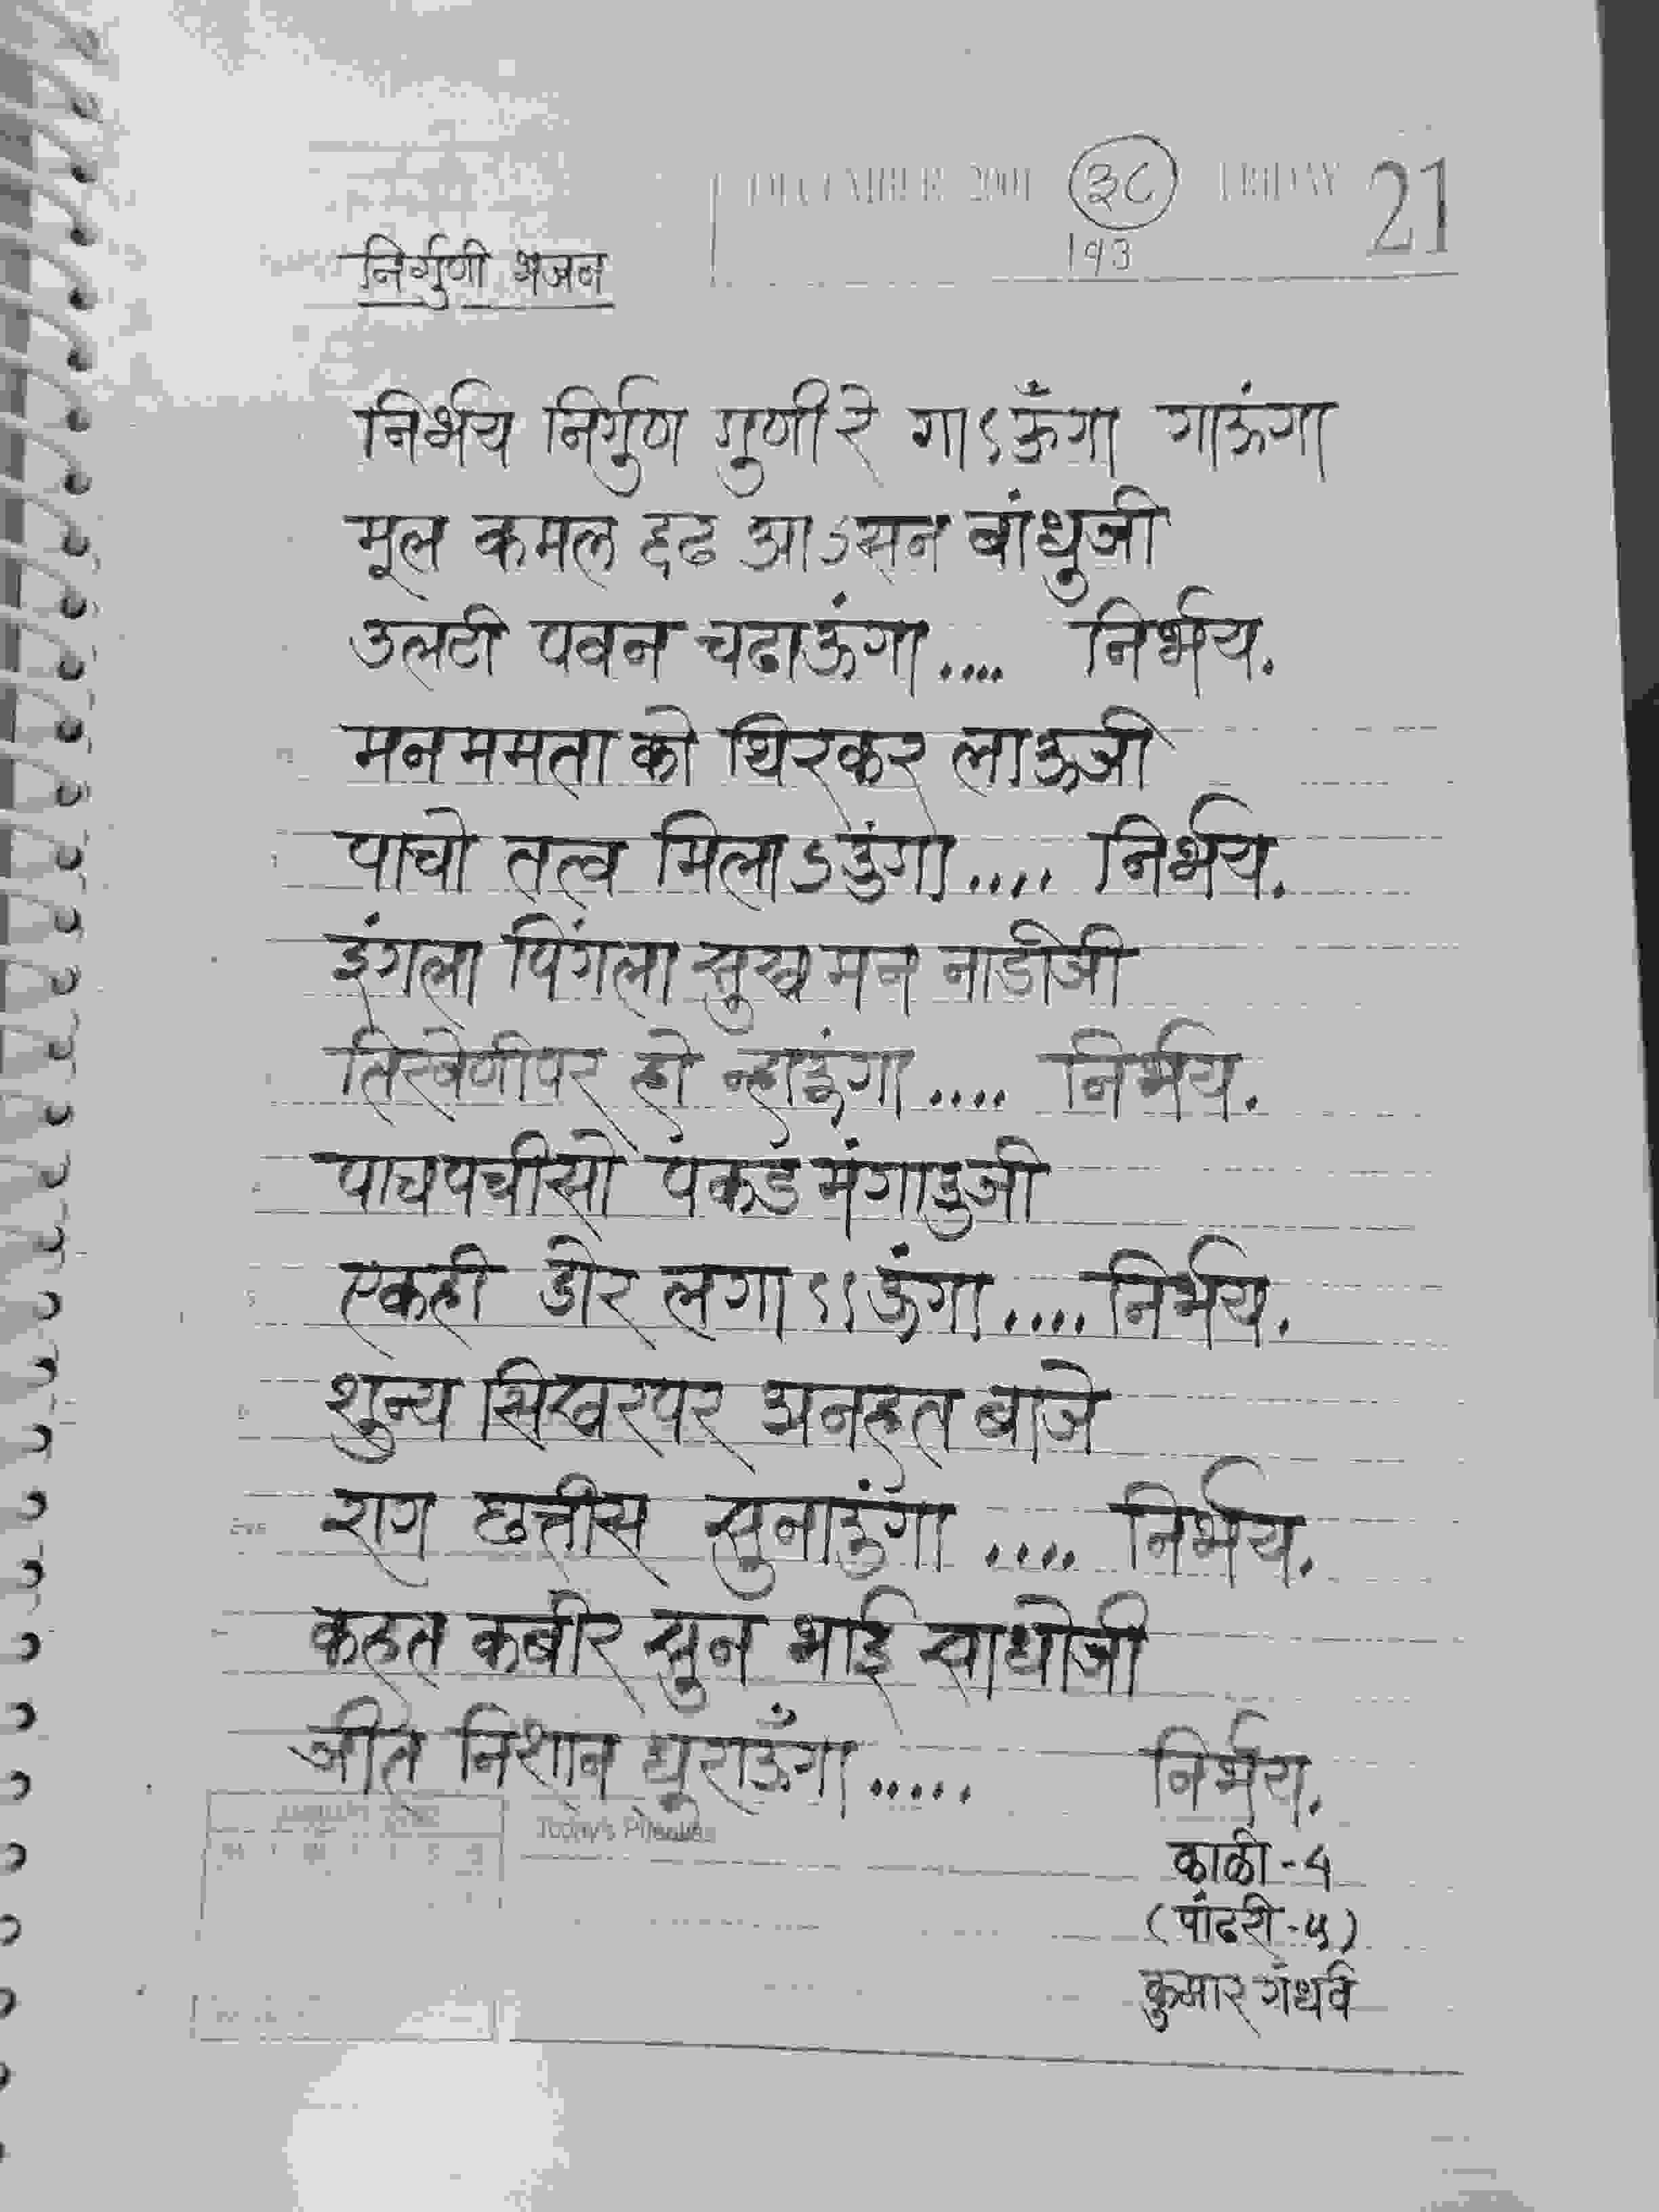 DECEMBER 2001 ३८ FRIDAY 21
193
निर्गुणी भजन
निर्भय निर्गुण गुणी रे गाऽऊँगा गाऊंगा
मूल कमल द्दढ आऽसन बांधुजी
उलटी पवन चढाऊंगा.... निर्भय.
मन ममता को थिरकर लाऊजी
पाचो तत्व मिलाऽउंगा.... निर्भय.
इंगला पिंगला सुख मन नाडीजी
तिरवेणीपर हो न्हाउंगा.... निर्भय.
पाचपचीसो पकड मंगाउजी
एकही डोर लगाऽऽऊंगा.... निर्भय.
शुन्य सिखरपर अनहत बाजे
राग छत्तीस सुनाउंगा .... निर्भय.
कहत कबीर सुन भाई साधोजी
जीत निशान धुराऊँगा..... निर्भय.
Today's Priorities
काळी-4
(पांढरी-५)
कुमार गंधर्व